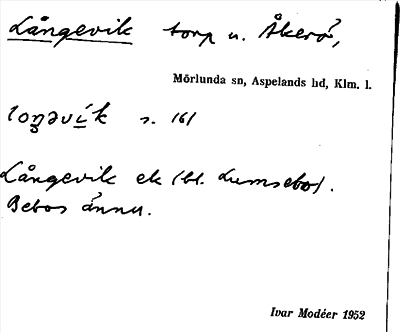 Långevik torp u. Åkerö,
Mörlunda sn, Aspelands hd, Klm. l.
s. 161
Långevik ek (bl. Lumsebo).
Bebos ännu.
Ivar Modéer 1952